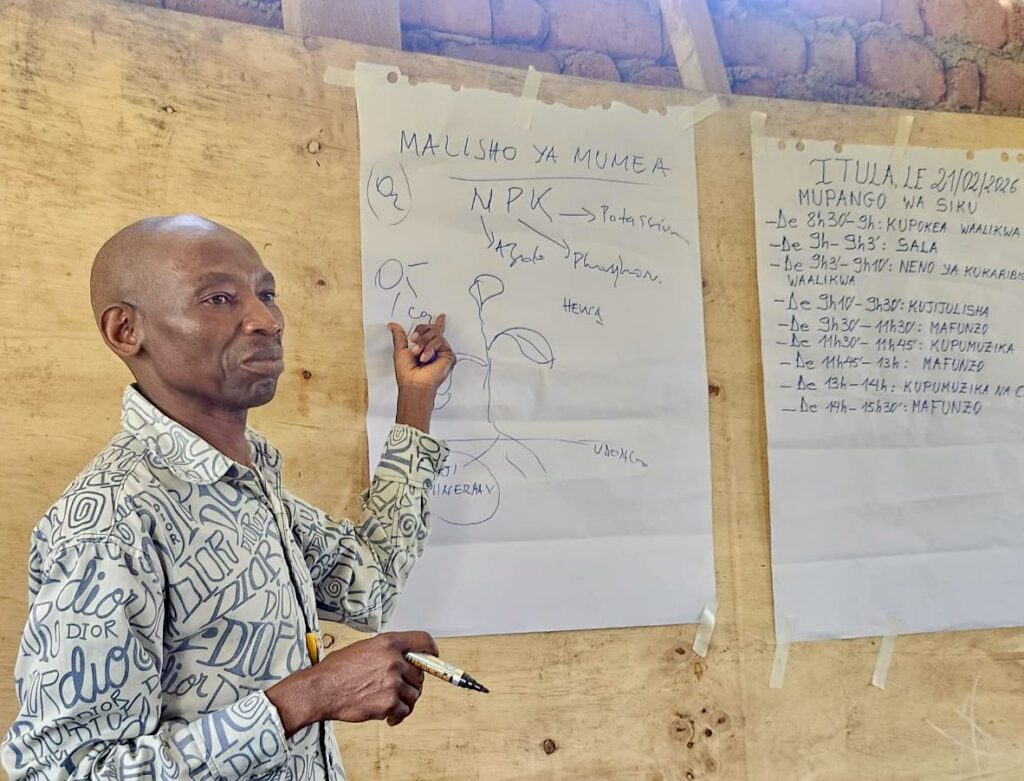 MALISHO YA MUMEA
(O2)
NPK
Potassium
Azote
Phosphor.
O
CO2
Hewa
UDONGO
MINERAUX
ITULA, LE 21/02/2026
MUPANGO WA SIKU
- De 8h30'-9h: KUPOKEA WAALIKWA
- De 9h-9h3': SALA
- De 9h3'-9h10': NENO YA KUKARIBIS
WAALIKWA
- De 9h10'-9h30': KUJIJULISHA
- De 9h30'-11h30': MAFUNZO
- De 11h30'-11h45': KUPUMUZIKA
- De 11h45'-13h: MAFUNZO
- De 13h-14h: KUPUMUZIKA NA C
- De 14h-15h30': MAFUNZO
dior
DIOR
dior
DIOR
DIOR
DIOR